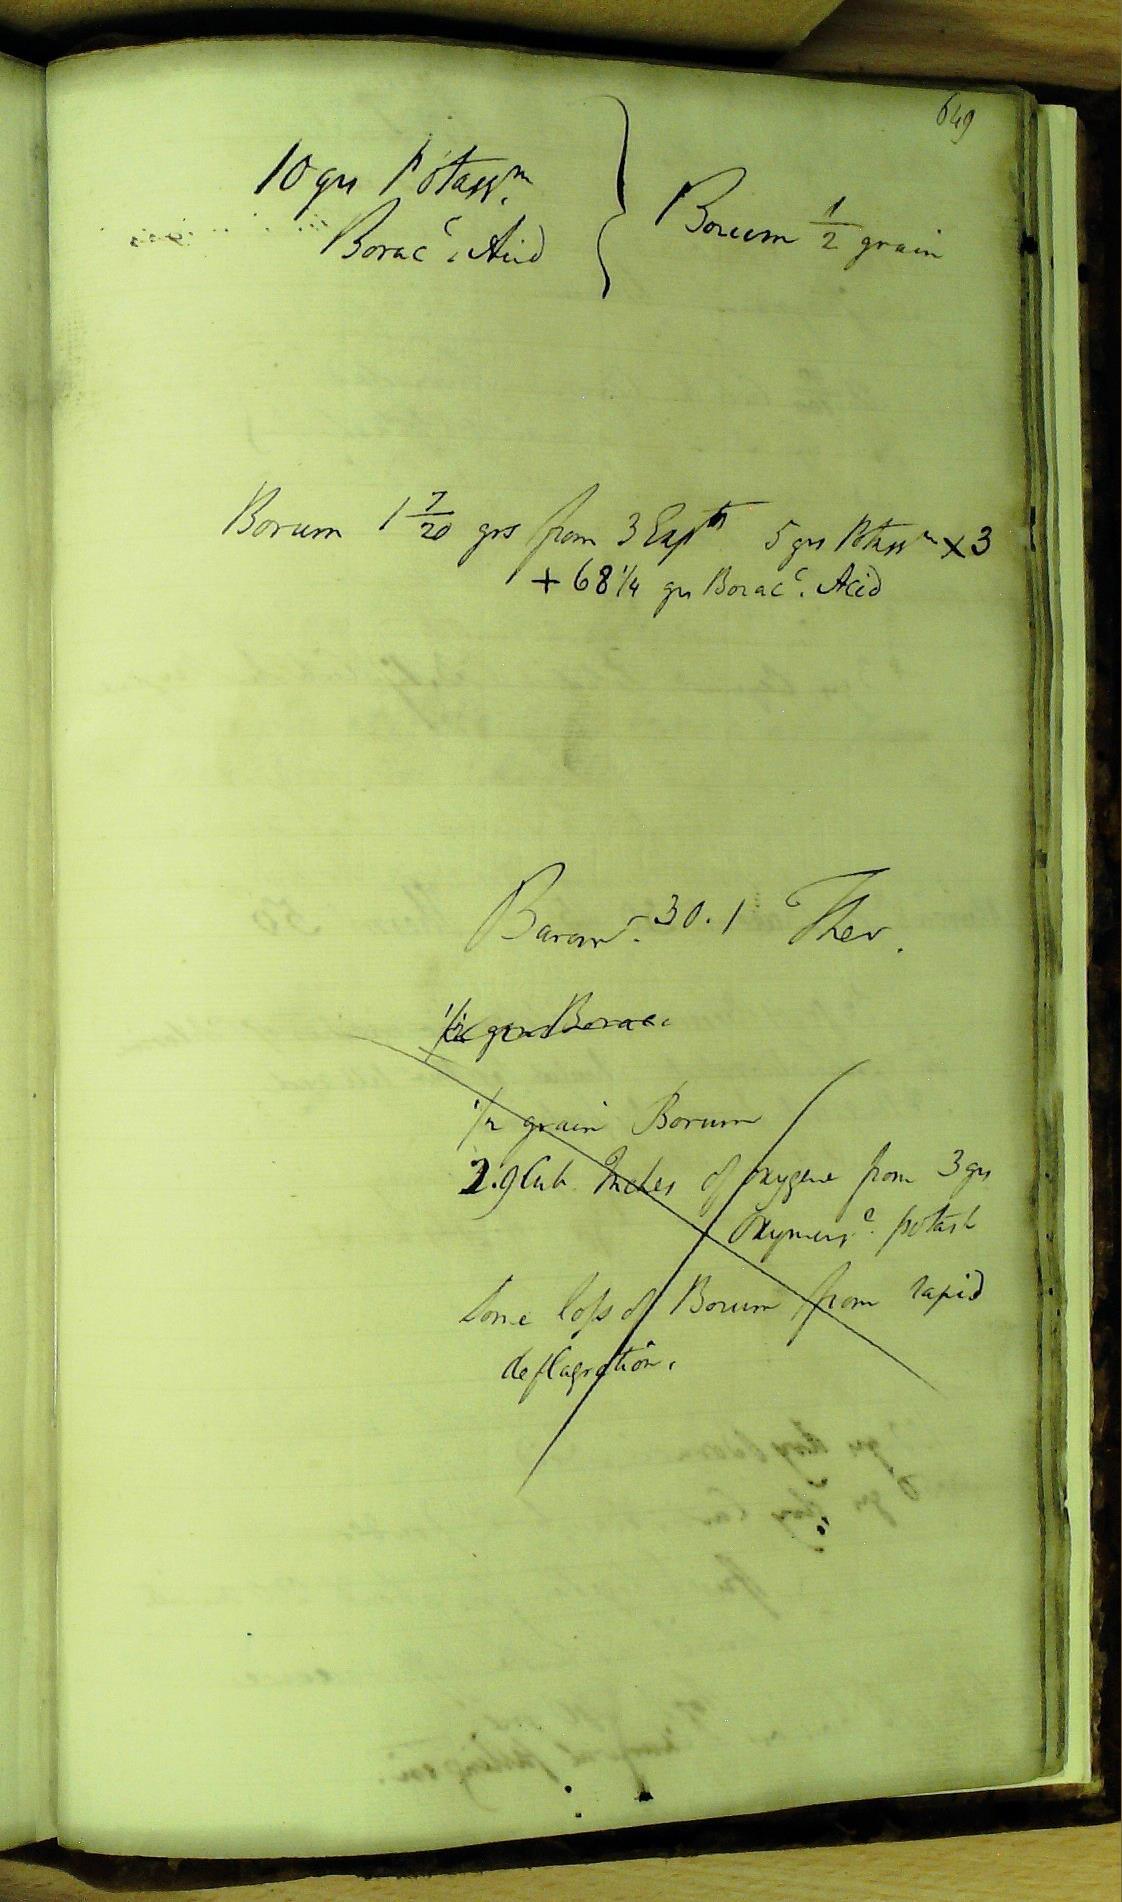 649
10 grs Potassm.
Boracc. Acid } Borum 1/2 grain
Borum 1 7/20 grs from 3 Expts 5 grs Potassm × 3
+ 68 1/4 grs Boracc. Acid
Baromr. 30.1 Ther.
1/2 grs Borac.
1/2 grain Borum
2.9 Cub. Inches of oxygene from 3 grs
Oxymurc. potash
Some loss of Borum from rapid
deflagration.